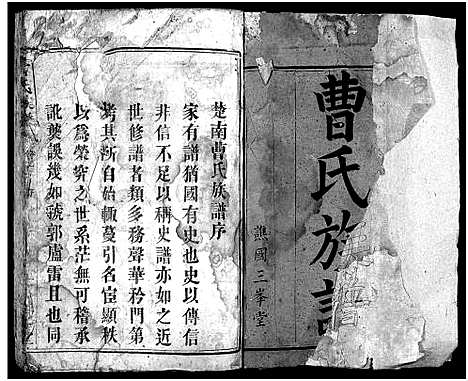 曹氏族譜
譙國三峯堂
楚南曹氏族譜序
家有譜猶國有史也史以傳信
非信不足以稱史譜亦如之近
世修譜者類多務聲華矜門第
考其所自始輒蔓引名宦顯秩
以爲榮究之世系茫無可稽承
訛襲誤幾如號郭盧雷且也同